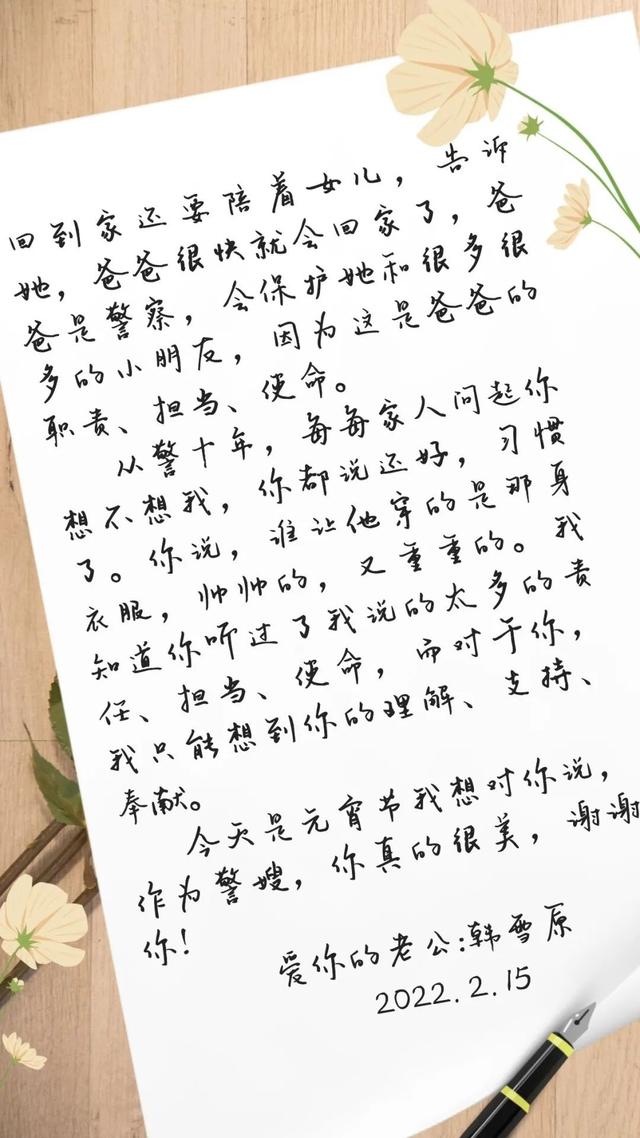 回到家还要陪着女儿，告诉
她，爸爸很快就会回家了，爸
爸是警察，会保护她和很多很
多的小朋友，因为这是爸爸的
职责、担当、使命。
从警十年，每每家人问起你
想不想我，你都说还好，习惯
了。你说，谁让他穿的是那身
衣服，帅帅的，又重重的。我
知道你听过了我说的太多的责
任、担当、使命，而对于你，
我只能想到你的理解、支持、
奉献。
今天是元宵节我想对你说，
作为警嫂，你真的很美，谢谢
你！
爱你的老公：韩雪原
2022.2.15